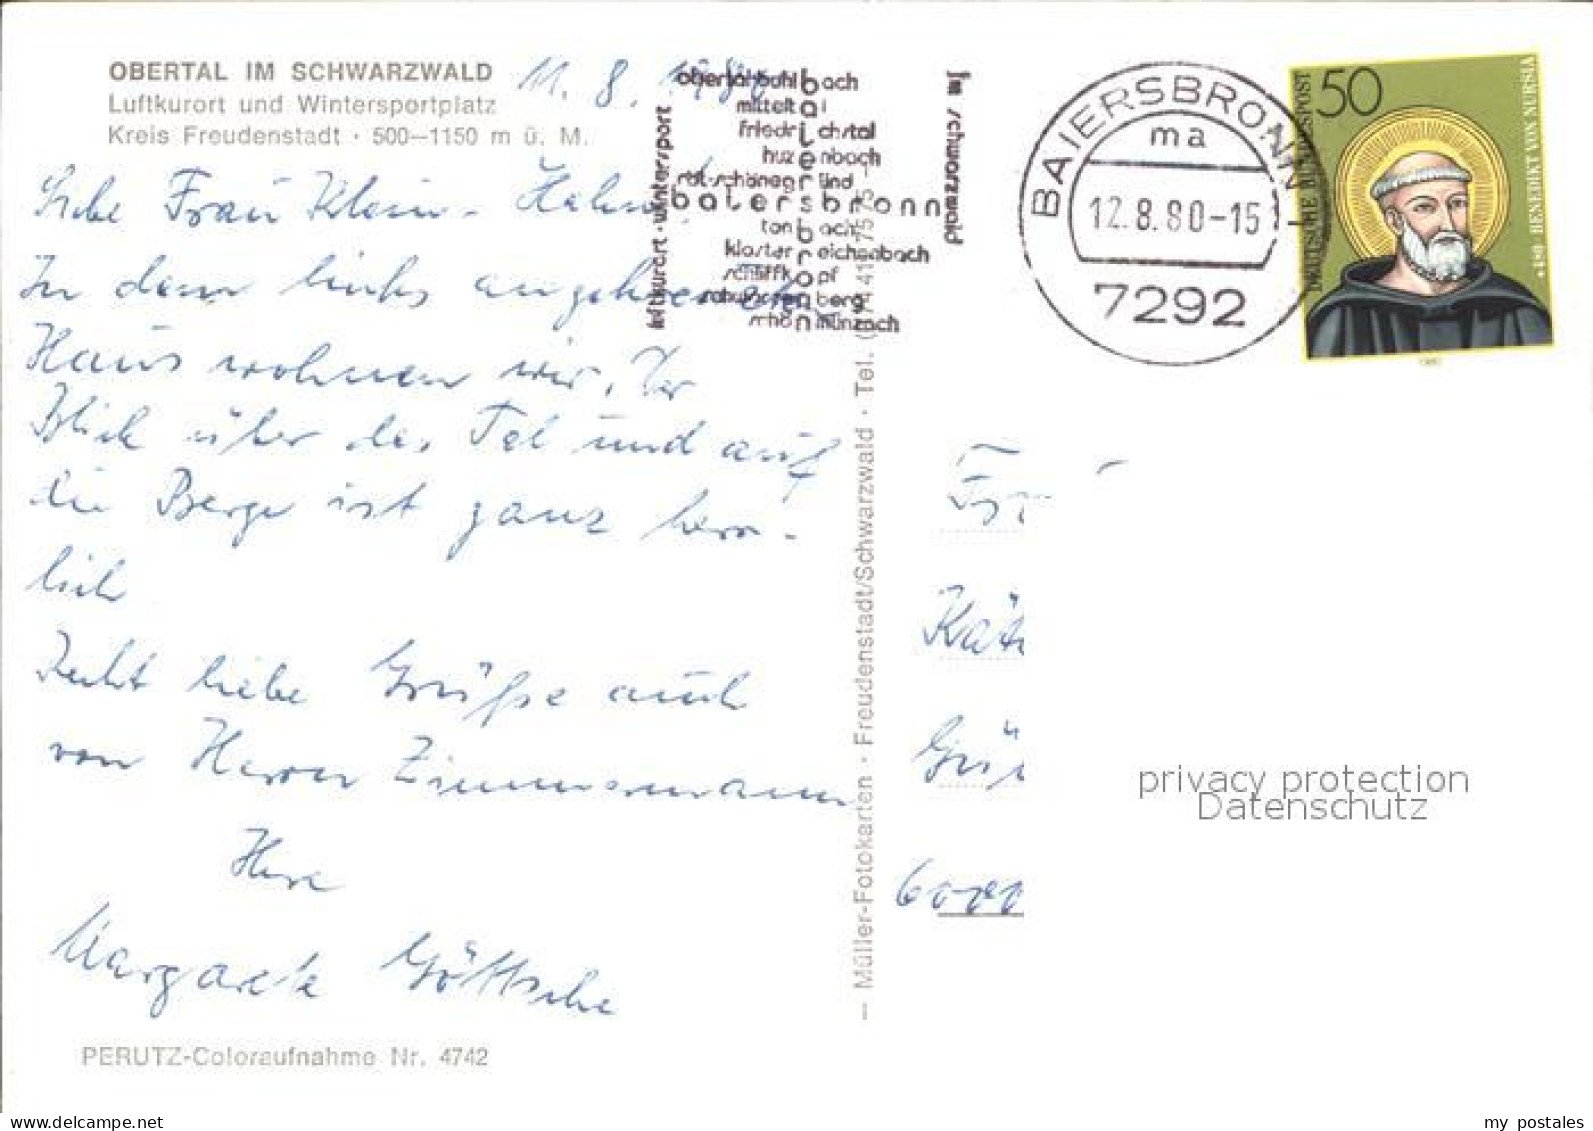 OBERTAL IM SCHWARZWALD
Luftkurort und Wintersportplatz
Kreis Freudenstadt · 500–1150 m ü. M.
11. 8. 1980
Liebe Frau Klein-Hahn!
In dem links angekreuzten
Haus wohnen wir. Der
Blick über das Tal und auf
die Berge ist ganz herr-
lich
Recht liebe Grüße auch
von Herrn Zimmermann
Ihre
Margarete Göttsche
PERUTZ-Coloraufnahme Nr. 4742
— Müller-Fotokarten · Freudenstadt/Schwarzwald · Tel.
luftkurort · wintersport
obertal-buhlbach
mitteltal
friedrichstal
huzenbach
röt-schönegründ
baiersbronn
tonbach
klosterreichenbach
schliffkopf
schwarzenberg
schönmünzach
im schwarzwald
BAIERSBRONN 1
ma
12.8.80-15
7292
50
DEUTSCHE BUNDESPOST
*480 BENEDIKT VON NURSIA
Kät
6000
privacy protection
Datenschutz
www.delcampe.net
my_postales